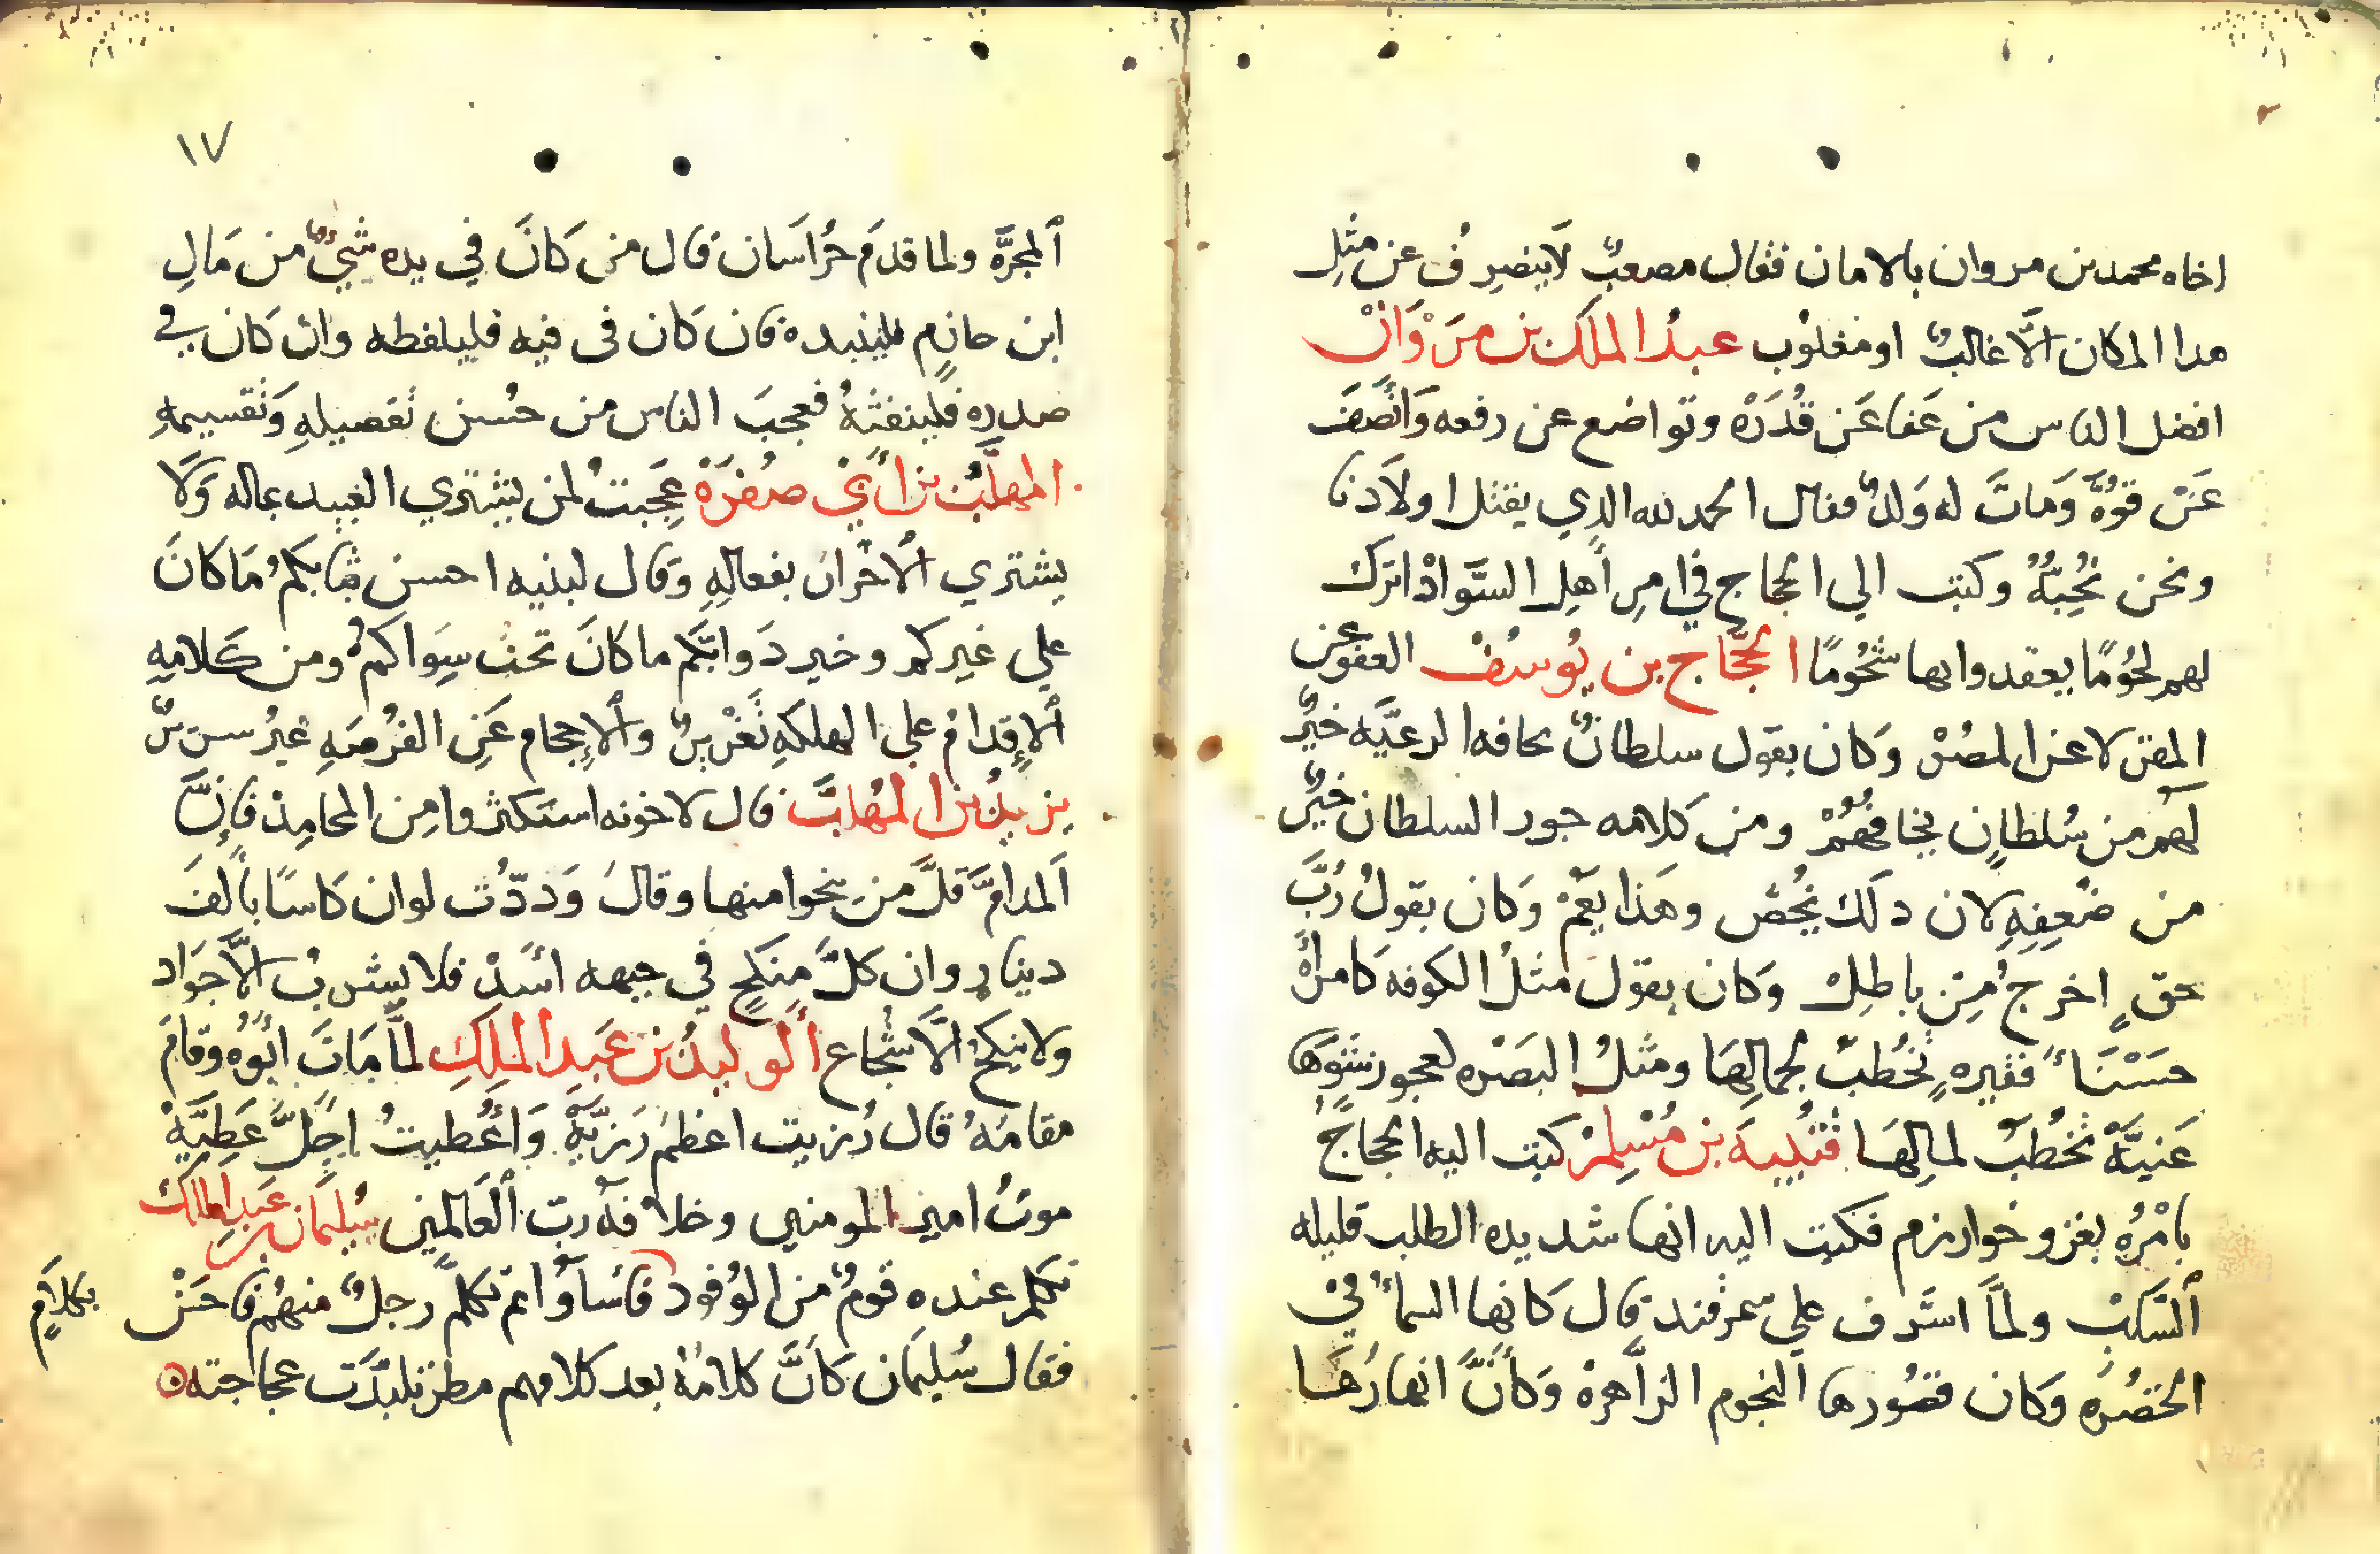 اخاه محمد بن مروان بالامان فقال مصعبٌ لَا ينصرِفُ عن مثلِ
هدا المكان الَّا غالبٌ او مغلوُب عبدُ الملَك بن مَرْوَانْ
افضل الناس من عَفا عَن قُدَرَة وتواضع عن رفعه وَانْصَفَ
عَنْ قوُةٍ وَماتَ له وَلدٌ فقال الحمد لله الدِي يقتل اولَادنا
ونحن نُحِبّهُ وكتب الي الحجاج في امرِ أَهلِ السَّوادْ اترك
لهم لحُومًا يعقدوا بها شحُومًا الحجّاج بن يُوسُفْ العفو عن
المقر لا عن المصُر وَكان يقول سلطانٌ تخافه الرعيَّه خيرٌ
لَهم من سُلطانٍ يخافُهُمْ ومن كلامه جور السلطان خيرٌ
من ضَعِفِهِ لان دلَك يخُصّ وهَذا يَعُمْ وَكان يقولُ رُبَّ
حقٍ اخرجُ مِن باطلِ وَكان يقول مثلُ الكوفه كَامرأَة
حَسْنَاءَ فقيرهٍ تخُطَبُ لجمالِهَا ومَثلُ البَصْره لعجوز شَوهَا
غَنيَّةً تخُطَبُ لمالِهَا قُتَيبةَ بن مُسْلِمْ كتب اليه الحجاجُ
يامْرُهِ بغزو خوارزم فكتب اليه انها شديده الطلب قليله
اَلسَّلَبْ ولمَّا اشَرف علي سمرقند قال كَانها السماءُ في
الخضُرَه وَكان قصُورها اَلنجوم الزاهره وَكأنَّ انهارُهَا
١٧
اَلمجرَّه ولما قدمَ خُراسَان قال من كَانَ في يده شيٌ من مَالِ
ابن حازمٍ فلينبده فان كَان في فيه فليلفظه وان كَان في
صدره فلينفثهُ فعجبَ الناس من حُسن تفصيلهِ وَتقسيمهِ
المهلَّبُ بن أَبي صفُرَةْ عَجبتُ لمن يشتري العبيد بماله وَلَا
يشتري اَلاحْرارَ بفعالهِ وَقال لبنيه احسن ثيابكمُ مَا كانَ
علي غيرِكم وخير دَوابّكم ما كانَ تحت سِوَاكمُ ومن كَلامِهِ
اَلإِقدامُ علي الهلكهِ تَغْريرٌ واَلإِحجام عَنِ الفُرصَهِ
يزيدُ بن المُهلبَّ قال لاخوته استكثروا مِن المحامِد فإنَّ
اَلمدامَّ قلَّ من ينجوا منها وقالَ وَددّت لو ان كَاسًا بأَلفَ
دينارٍ وان كلَّ منكَحٍ في جبهه اسَدْ فلا يشربُ الَّا جَواد
ولا ينكَحُ الَّا شُجاع اَلوليدُ بن عَبد الملِكِ لمَّا مَاتَ ابُوُه وقامَ
مقامَهُ قال رُزيت اعظمَ رَزيَّةْ وَأُعُطيتُ اجَلَّ عَطِيَّةْ
موتُ امير المومنين وخلافهُ رب اَلعَالمين سُليمَان بن عَبد الملك
تكلم عنده قومٌ من الوُفود فأساَوُا ثم تكلَّم رجلٌ منهُم فاحَسْن بكلامٍ
فقال سُليمَان كَأنَّ كلامَهُ بعد كلامهم مطرٌ لبدَّت عجاجته